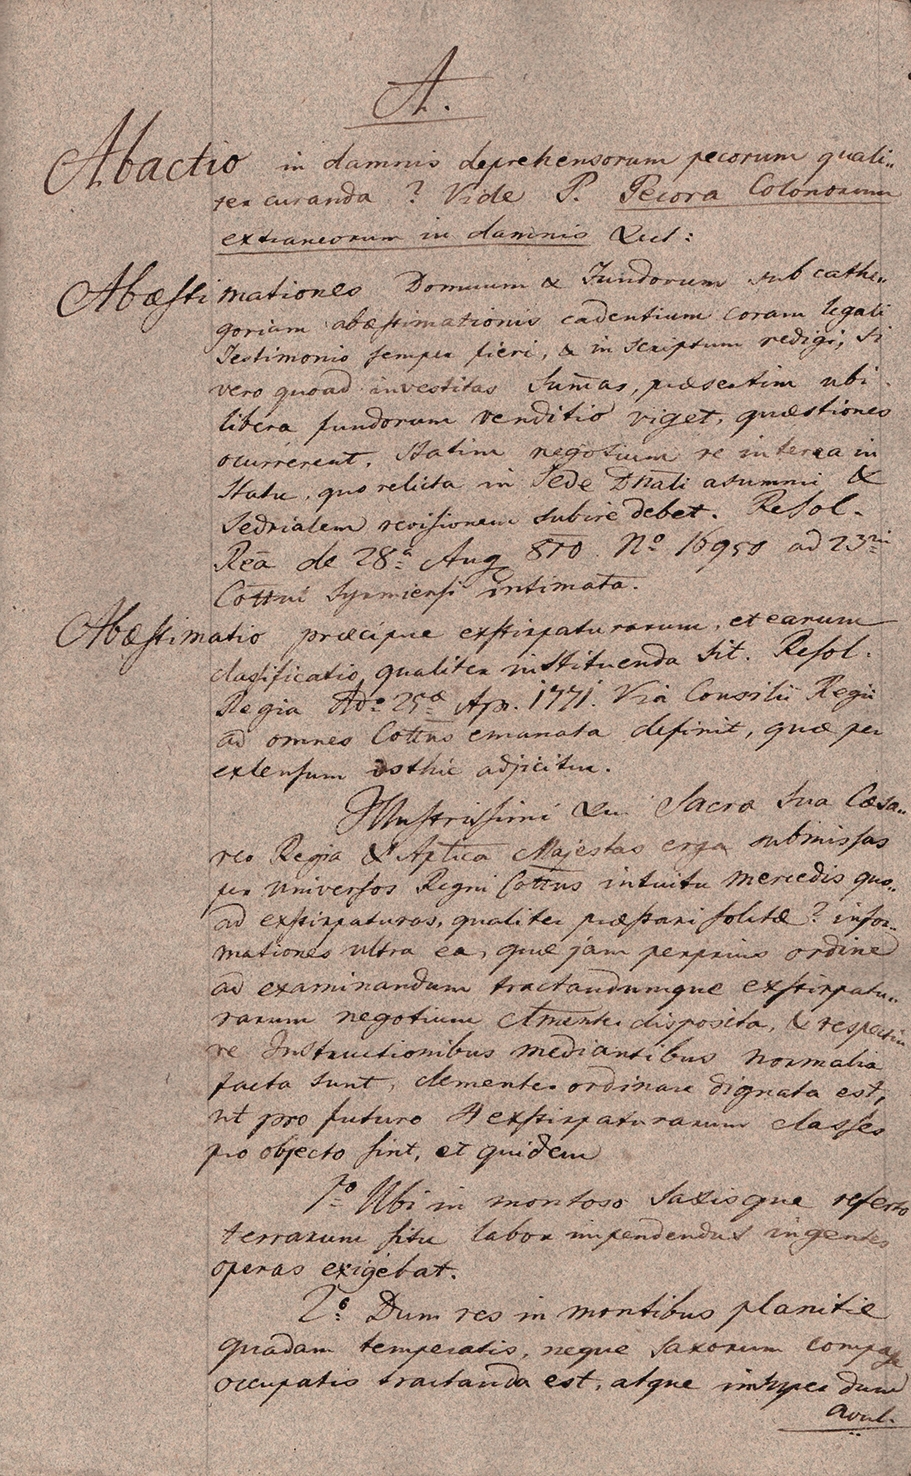 A.
Abactio in damnis deprehensorum pecorum quali„
ter curanda? Vide P. Pecora Colonorum
extraneorum in damnis &ct:
Abæstimationes Domuum & Fundorum sub cathe„
goriam abæstimationis cadentium coram legali
Testimonio semper fieri, & in scriptum redigi, si
vero quoad investitas Sum̄as, præsertim ubi
libera fundorum venditio viget, quæstiones
ocurrerent, statim negotium re interea in
Statu, quo relicta in Sede Dn̄ali asummi &
Sedrialem revisionem subire debet. Resol.
Reā de 28ª Aug 810 Nº 16950 ad 23tii
Cottui Syrmiensi intimata.
Abæstimatio præcipue exstirpaturarum, et earum
clasificatio, qualiter instituenda sit. Resol.
Regia Ddº 25ª Apr. 1771. Via Consilii Regii
ad omnes Cottus emanata definit, quæ per
extensum isthic adjicitur.
Illustrissimi &. Sacra Sua Cæsa„
reo Regia & Aptlica Majestas erga submissas
per Universos Regni Cottus intuitu mercedis quo„
ad exstirpaturas, qualiter præstari solitæ? infor„
mationes ultra ea, quæ jam perprius ordine
ad examinandum tractandumque exstirpatu„
rarum negotium Clmenter disposita, & respecti
ve Instructionibus mediantibus normalia
facta sunt, clementer ordinare dignata est,
ut pro futuro 4 exstirpaturarum classes
pro objecto sint, et quidem
1º Ubi in montoso saxisque referto
terrarum situ labor impendendus ingentes
operas exigebat.
2º: Dum res in montibus planitie
quadam temperatis, neque saxorum compage
occupatis tractanda est, atque insuper dum
avul.